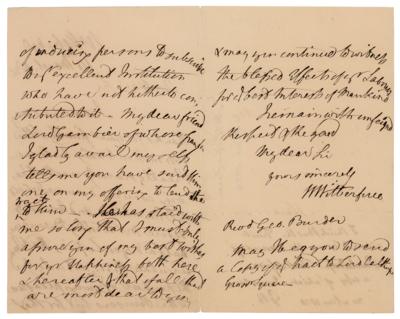 of inducing persons to subscribe
to yr. excellent Institution
who have not hitherto con-
tributed to it - My dear friend
Lord Gambier of whose frank
I gladly avail myself
tells me you have send him
one on my offering to lend the
tract
to him - He has staid with
me so long that I must only
assure you of my best wishes
for yr. Happiness both here
& hereafter & that of all that
are most dear to you
& may you continue to witness
the blessed Effects of yr. Labours
for ye best Interests of Mankind
I remain with unfeigned
Respect & Regard
My dear Sir
yours sincerely
W Wilberforce
Revd Geo. Burder
May I beg you to send
a Copy of ye Tract to Lord Calthorpe
Grosr Square -